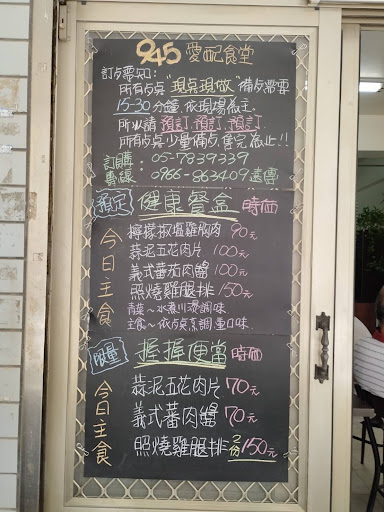 945 愛配食堂
訂購需知:
所有點桌"現點現做"備點需要
15-30分鐘,依現場為主。
所以請預訂.預訂.預訂
所有點桌少量備點,售完為止!!
訂購專線: 05-7839339
0966-863409遠傳
預定 健康餐盒 時價
今日主食
檸檬椒鹽雞胸肉 90元
蒜泥五花肉片 100元
義式蕃茄肉醬 100元
照燒雞腿排 150元
青菜~水煮川燙調味
主食~依點桌烹調重口味
限量 握握便當 時價
今日主食
蒜泥五花肉片 70元
義式蕃肉醬 70元
照燒雞腿排 2份150元